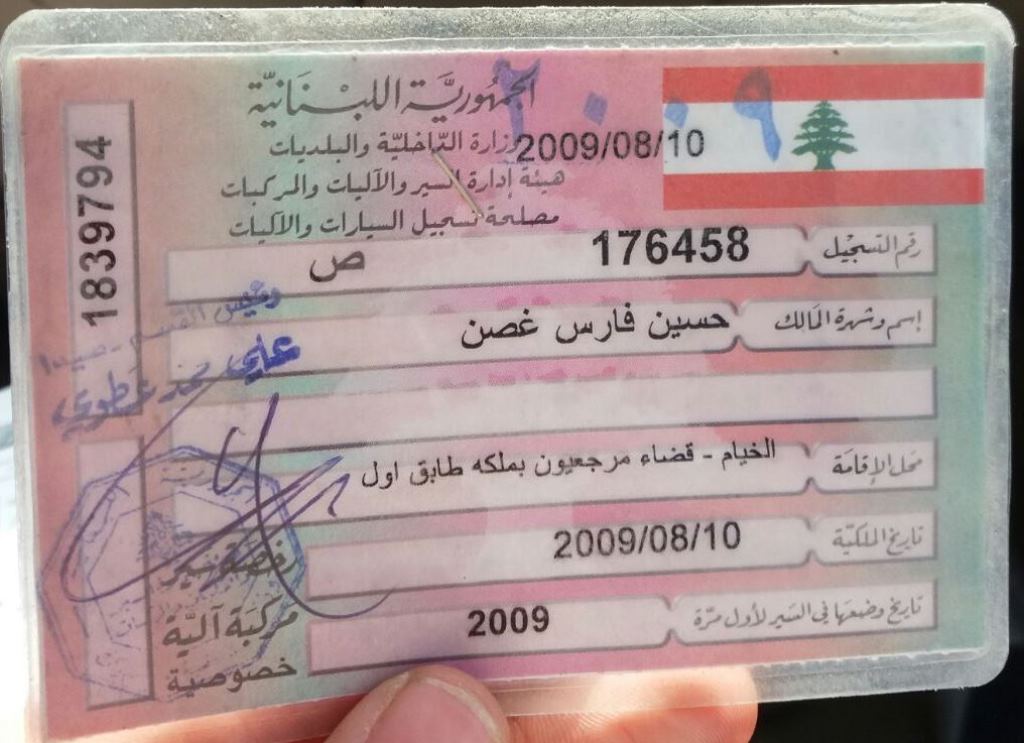 الجمهوريّة اللبنانيّة
٢٠٠٩
وزارة الدّاخليّة والبلديات
2009/08/10
هيئة إدارة السير والآليات والمركبات
مصلحة تسجيل السيارات والآليات
1839794
رقم التسجيل 176458 ص
إسم وشهرة المالك حسين فارس غصن
رئيس القسم - صيدا
علي محمد
محل الإقامة الخيام - قضاء مرجعيون بملكه طابق اول
تاريخ الملكيّة 2009/08/10
تاريخ وضعها في السير لأول مرّة 2009
رخصة سير
مركبة آليّة
خصوصية